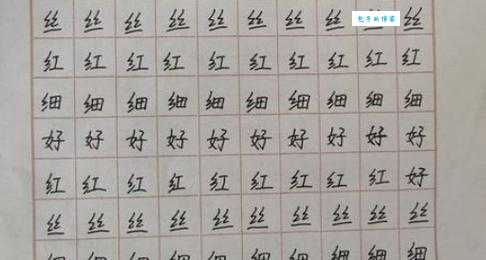 丝 丝 丝 丝 丝 丝 丝 丝 丝
红 红 红 红 红 红 红 红 红 红
细 细 细 细 细 细 细 细 细 细
好 好 好 好 好 好 好 好 好 好
红 红 红 红 红 红 红 红 红 好
丝 丝 丝 丝 丝 丝 丝 丝 丝 丝
细 细 细 细 细 细 细 细 细 细